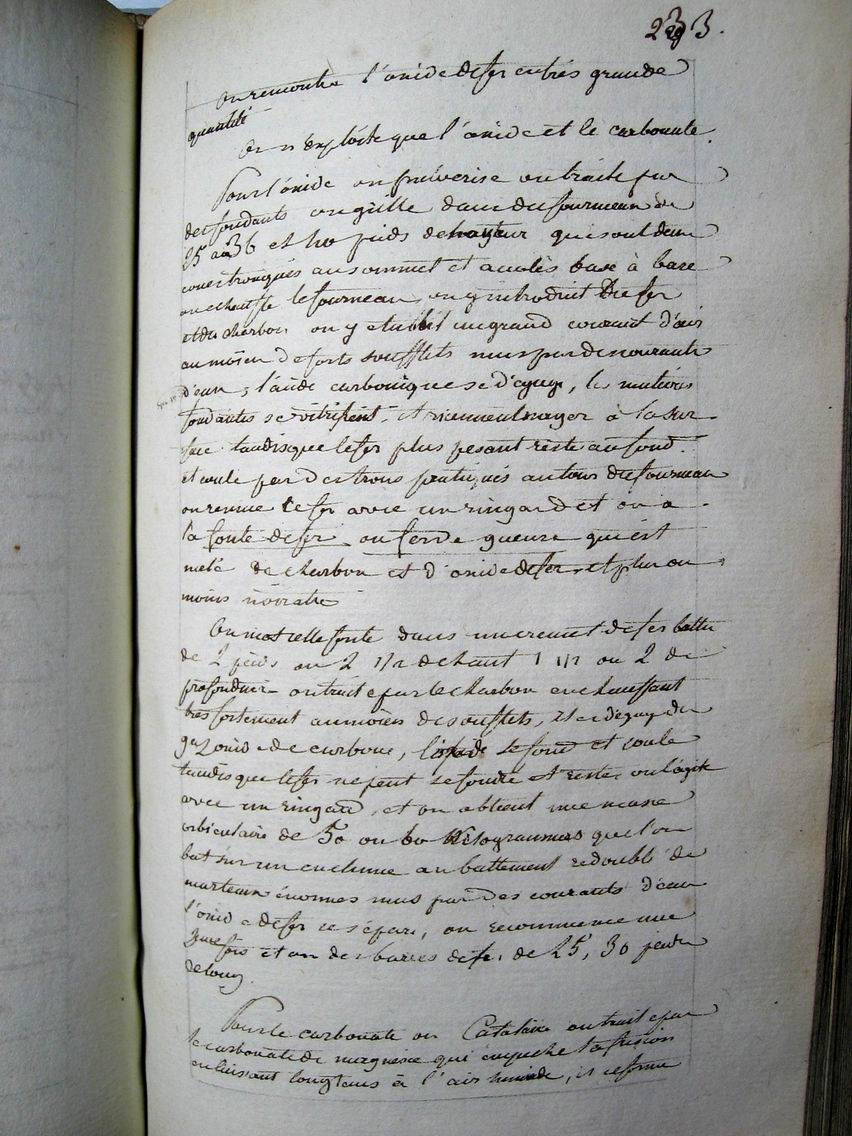 233.
On rencontre l'oxide de fer en très grande
quantité
On n'exploite que l'oxide et le carbonate.
Pour l'oxide on pulverise on traite par
des fondants on grille dans des fourneaux de
25 a 36 et 40 pieds de hauteur qui sont deux
cones tronqués au sommet et accolés base à base
on echauffe le fourneau, on y introduit du fer
et du charbon on y etablit un grand courant d'air
au moien de forts soufflets mus par des courants
d'eau, l'acide carbonique se dégage, les matières
fondantes se vitrifient, et viennent nager à la sur
face tandisque le fer plus pesant reste au fond.
et coule par des trous pratiqués autour du fourneau
on remue le fer avec un ringard et on a
la fonte de fer ou fer de gueuse qui est
melé de charbon et d'oxide de fer et plus ou
moins noiratre
On met cette fonte dans un creuset de fer battu
de 2 pieds ou 2 1/2 de haut 1 1/2 ou 2 de
profondeur on traite par le charbon en chauffant
très fortement au moien de soufflets, il se dégage du
gaz oxide de carbone, l'oxide se fond et coule
tandis que le fer ne peut se fondre et reste, on l'agite
avec un ringard, et on obtient une masse
orbiculaire de 50 ou 60 Kilogrammes que l'on
bat sur un enclume au battement redoublé de
marteaux énormes mus par des courants d'eau
l'oxide de fer se sépare, on recommence une
2me fois et on a des barres de fer de 25, 30 pieds
de long.
Pour le carbonate on traite par
le carbonate de magnesie qui empeche la fusion
en laissant longtems à l'air humide, il se forme